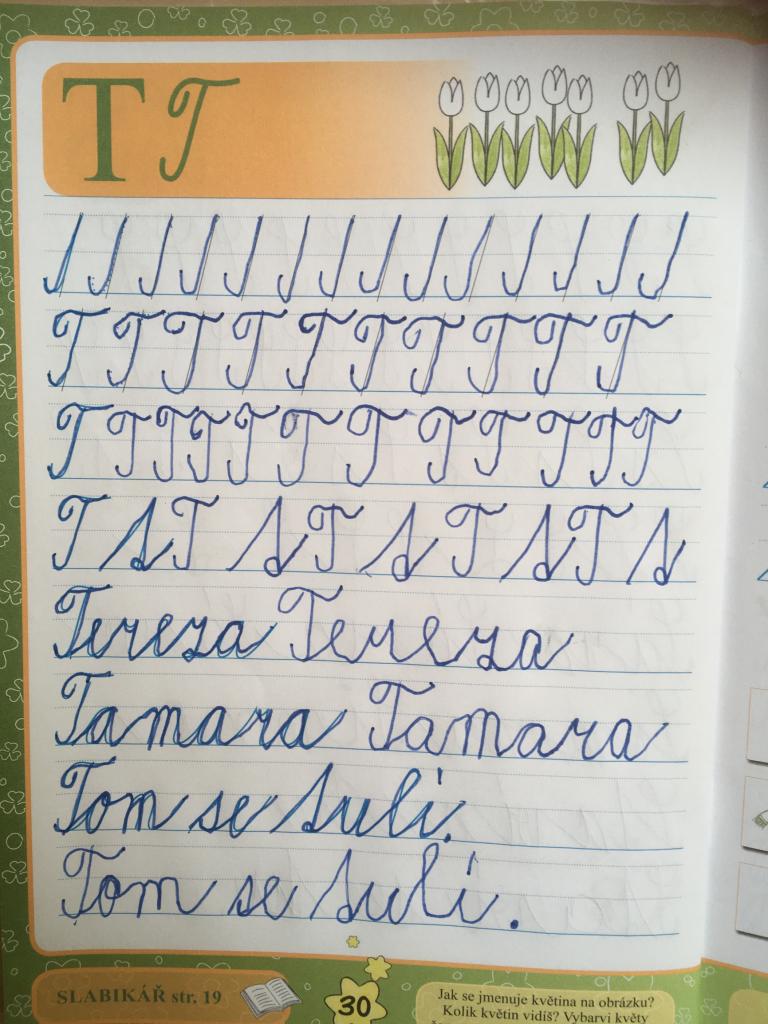 T T
T T T T T T T T T T
T T T T T T T T T T T T
T t T t T t T t T t
Tereza Tereza
Tamara Tamara
Tom se tulí.
Tom se tulí.
SLABIKÁŘ str. 19
30
Jak se jmenuje květina na obrázku?
Kolik květin vidíš? Vybarvi květy